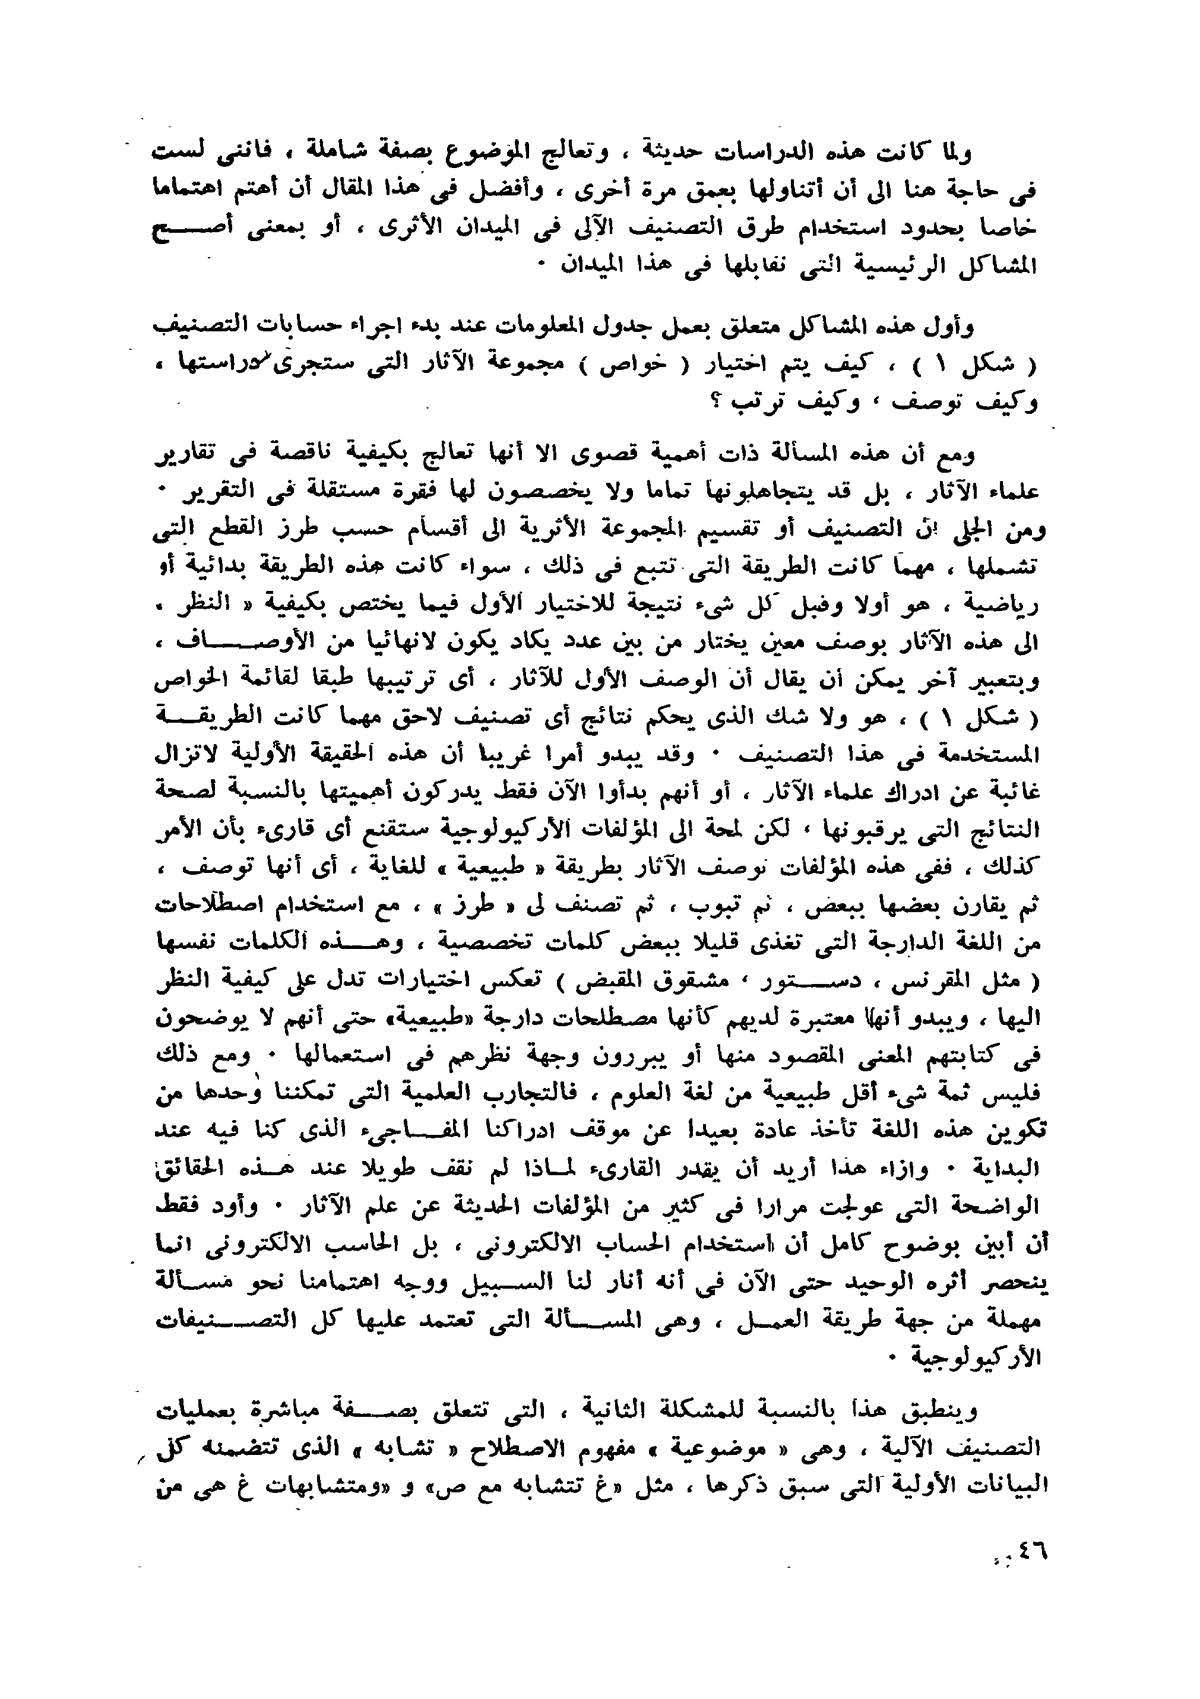 ولما كانت هذه الدراسات حديثة ، وتعالج الموضوع بصفة شاملة ، فاننى لست
فى حاجة هنا الى أن أتناولها بعمق مرة أخرى ، وأفضل فى هذا المقال أن أهتم اهتماما
خاصا بحدود استخدام طرق التصنيف الآلى فى الميدان الأثرى ، أو بمعنى أصـــح
المشاكل الرئيسية التى نقابلها فى هذا الميدان ٠
وأول هذه المشاكل متعلق بعمل جدول المعلومات عند بدء اجراء حسابات التصنيف
( شكل ١ ) ، كيف يتم اختيار ( خواص ) مجموعة الآثار التى ستجرى دراستها ،
وكيف توصف ، وكيف ترتب ؟
ومع أن هذه المسألة ذات أهمية قصوى الا أنها تعالج بكيفية ناقصة فى تقارير
علماء الآثار ، بل قد يتجاهلونها تماما ولا يخصصون لها فقرة مستقلة فى التقرير ٠
ومن الجلى ان التصنيف أو تقسيم المجموعة الأثرية الى أقسام حسب طرز القطع التى
تشملها ، مهما كانت الطريقة التى تتبع فى ذلك ، سواء كانت هذه الطريقة بدائية أو
رياضية ، هو أولا وقبل كل شىء نتيجة للاختيار الأول فيما يختص بكيفية « النظر ،
الى هذه الآثار بوصف معين يختار من بين عدد يكاد يكون لانهائيا من الأوصــــاف ،
وبتعبير آخر يمكن أن يقال أن الوصف الأول للآثار ، أى ترتيبها طبقا لقائمة الخواص
( شكل ١ ) ، هو ولا شك الذى يحكم نتائج أى تصنيف لاحق مهما كانت الطريقــة
المستخدمة فى هذا التصنيف ٠ وقد يبدو أمرا غريبا أن هذه الحقيقة الأولية لاتزال
غائبة عن ادراك علماء الآثار ، أو أنهم بدأوا الآن فقط يدركون أهميتها بالنسبة لصحة
النتائج التى يرقبونها ، لكن لمحة الى المؤلفات الأركيولوجية ستقنع أى قارىء بأن الأمر
كذلك ، ففى هذه المؤلفات توصف الآثار بطريقة « طبيعية » للغاية ، أى أنها توصف ،
ثم يقارن بعضها ببعض ، ثم تبوب ، ثم تصنف لى « طرز » ، مع استخدام اصطلاحات
من اللغة الدارجة التى تغذى قليلا ببعض كلمات تخصصية ، وهــذه الكلمات نفسها
( مثل المقرنس ، دســتور ، مشقوق المقبض ) تعكس اختيارات تدل على كيفية النظر
اليها ، ويبدو أنها معتبرة لديهم كأنها مصطلحات دارجة «طبيعية» حتى أنهم لا يوضحون
فى كتابتهم المعنى المقصود منها أو يبررون وجهة نظرهم فى استعمالها ٠ ومع ذلك
فليس ثمة شىء أقل طبيعية من لغة العلوم ، فالتجارب العلمية التى تمكننا وحدها من
تكوين هذه اللغة تأخذ عادة بعيدا عن موقف ادراكنا المفــاجىء الذى كنا فيه عند
البداية ٠ وازاء هذا أريد أن يقدر القارىء لمـاذا لم نقف طويلا عند هــذه الحقائق
الواضحة التى عولجت مرارا فى كثير من المؤلفات الحديثة عن علم الآثار ٠ وأود فقط
أن أبين بوضوح كامل أن استخدام الحساب الالكترونى ، بل الحاسب الالكترونى انما
ينحصر أثره الوحيد حتى الآن فى أنه أنار لنا الســبيل ووجه اهتمامنا نحو مسـألة
مهملة من جهة طريقة العمـل ، وهى المســألة التى تعتمد عليها كل التصــنيفات
الأركيولوجية ٠
وينطبق هذا بالنسبة للمشكلة الثانية ، التى تتعلق بصــفة مباشرة بعمليات
التصنيف الآلية ، وهى « موضوعية » مفهوم الاصطلاح « تشابه » الذى تتضمنه كل
البيانات الأولية التى سبق ذكرها ، مثل «غ تتشابه مع ص» و «ومتشابهات غ هى من
٤٦